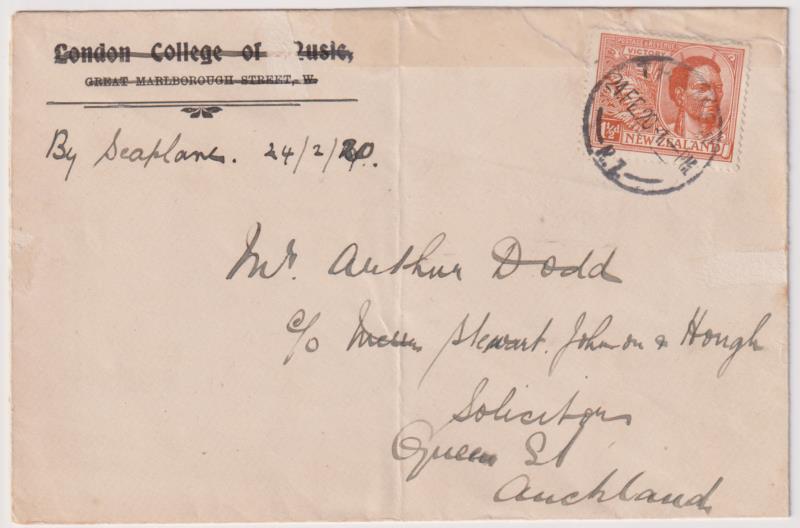 London College of Music,
GREAT MARLBOROUGH STREET, W.
By Seaplane. 24/2/20.
POSTAGE & REVENUE
VICTORY
1½d
NEW ZEALAND
24 FE 20
N.Z.
Mr. Arthur Dodd
c/o Messrs Stewart. Johnson & Hough
Solicitors
Queen St
Auckland